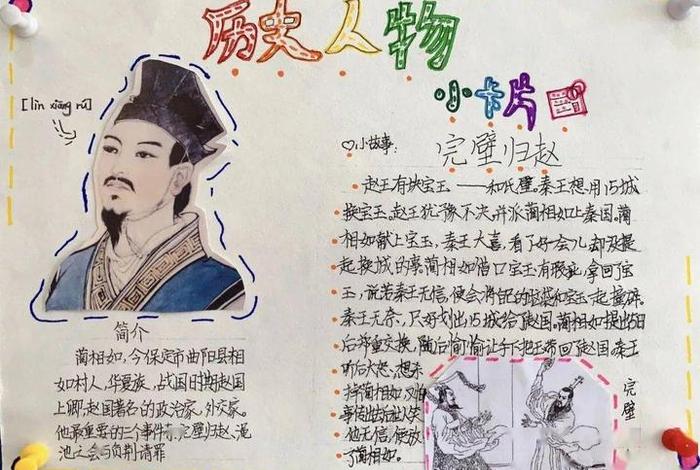 历史人物
小卡片
[lìn xiāng rú]
简介
蔺相如,今保定市曲阳县相
如村人,华夏族,战国时期赵国
上卿,赵国著名的政治家、外交家。
他最重要的三个事件:完璧归赵、渑
池之会与负荆请罪
小故事:
完璧归赵
赵王有块宝玉——和氏璧。秦王想用15城
换宝玉。赵王犹豫不决,并派蔺相如上秦国。蔺
相如献上宝玉,秦王大喜,看了好一会儿却没提
起换城的事蔺相如借口宝玉有瑕疵,拿回了宝
玉,说若秦王无信,便会将自己的脑袋和宝玉一起撞碎。
秦王无奈,只好划出15城给了赵国。蔺相如提出5日
后郑重交换,随后偷偷让手下把玉带回了赵国。秦王
听后大怒,想杀
掉蔺相如,又怕
他无信,便放
了蔺相如。
完璧